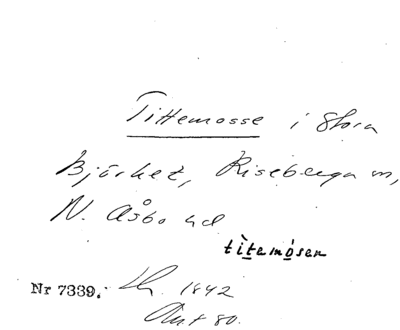 Tittemosse i Stora
Björket, Riseberga sn,
N. Åsbo hd
titemósen
Nr 7339. 1842
80.